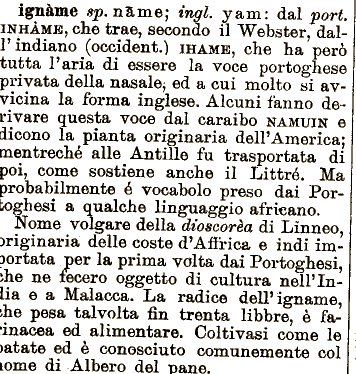 ignàme sp. ñame; ingl. yam: dal port.
INHÀME, che trae, secondo il Webster, dal-
l'indiano (occident.) IHAME, che ha però
tutta l'aria di essere la voce portoghese
privata della nasale, ed a cui molto si av-
vicina la forma inglese. Alcuni fanno de-
rivare questa voce dal caraibo NAMUIN e
dicono la pianta originaria dell'America;
mentreché alle Antille fu trasportata di
poi, come sostiene anche il Littré. Ma
probabilmente é vocabolo preso dai Por-
toghesi a qualche linguaggio africano.
Nome volgare della dioscorèa di Linneo,
originaria delle coste d'Affrica e indi im-
portata per la prima volta dai Portoghesi,
che ne fecero oggetto di cultura nell'In-
dia e a Malacca. La radice dell'igname,
che pesa talvolta fin trenta libbre, è fa-
rinacea ed alimentare. Coltivasi come le
patate ed è conosciuto comunemente col
nome di Albero del pane.